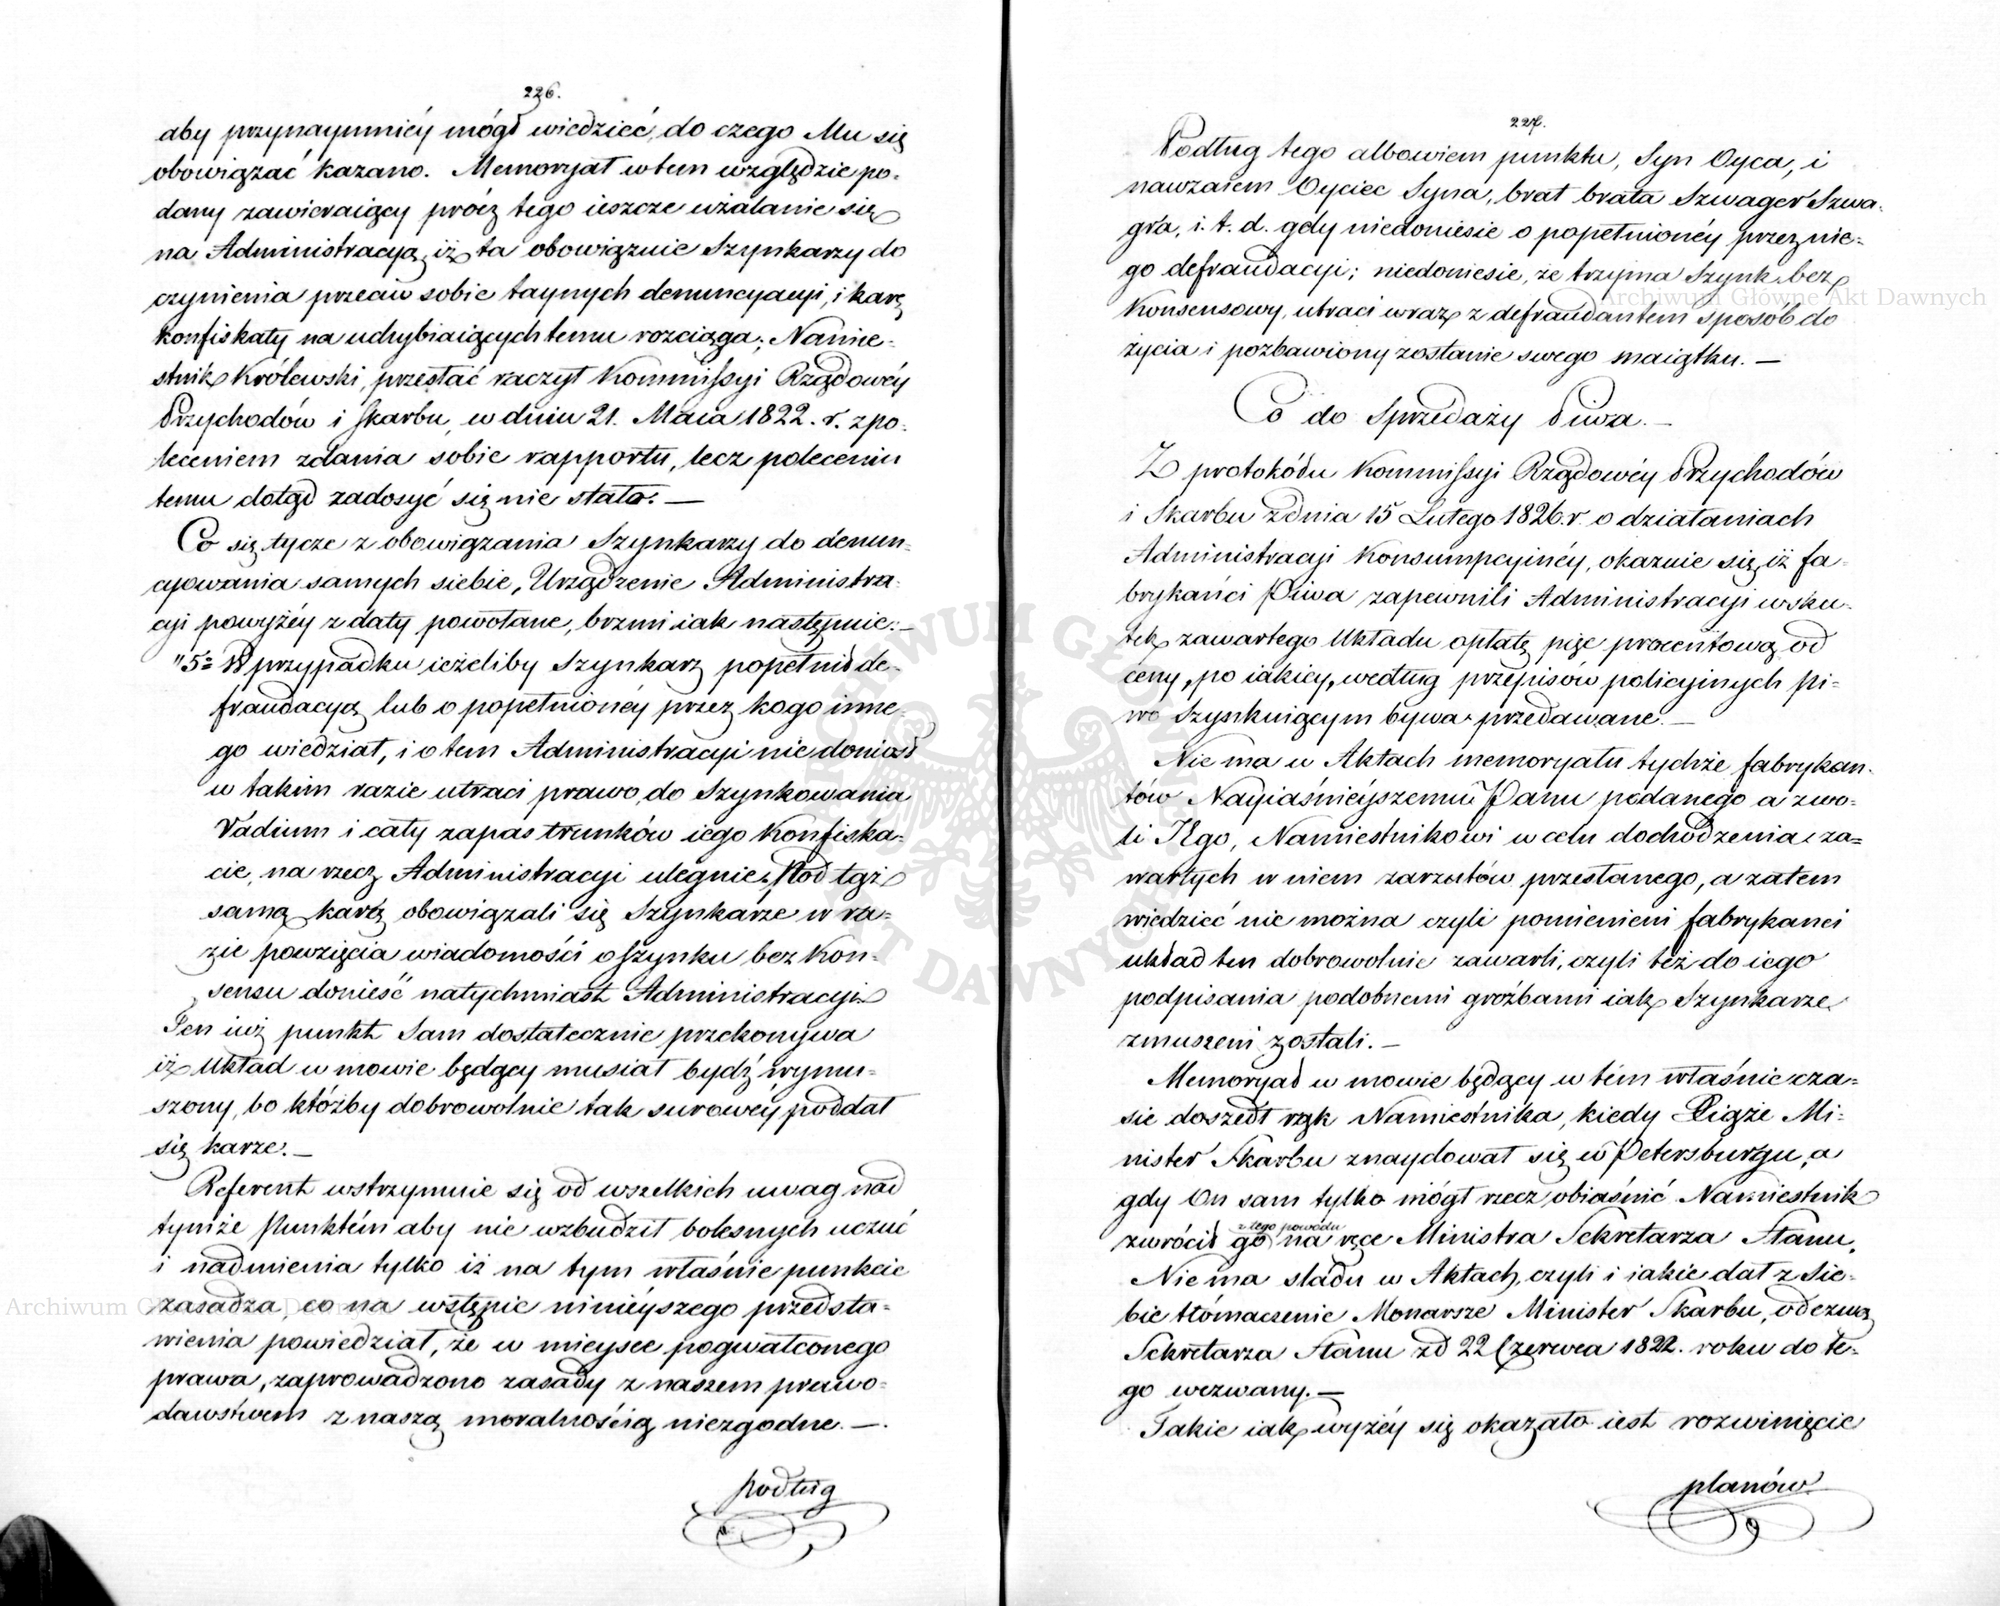 226.
aby przynaymniéy mógł wiedzieć, do czego Mu się
obowiązać kazano. Memoryał w tem względzie po-
dany zawieraiący prócz tego ieszcze użalanie się
na Administracyą, iż ta obowiązuie Szynkarzy do
czynienia przeciw sobie taynych denuncyacyi, i karę
konfiskaty na uchybiaiących temu rozciąga; Namie-
stnik Królewski, przesłać raczył Kommissyi Rządowéy
Przychodów i Skarbu, w dniu 21. Maia 1822. r. z po-
leceniem zdania sobie rapportu, lecz poleceniu
temu dotąd zadosyć się nie stało. —
Co się tycze z obowiązania Szynkarzy do denun-
cyowania samych siebie, Urządzenie Administra-
cyi powyżéy z daty powołane, brzmi iak następuie: —
"5º W przypadku ieżeliby Szynkarz popełnił de-
fraudacyą lub o popełnionéy przez kogo inne-
go wiedział, i o tem Administracyi nie doniosł
w takim razie utraci prawo do Szynkowania
Vadium i cały zapas trunków iego Konfiska-
cie, na rzecz Administracyi ulegnie. Pod tąż
samą karą obowiązali się Szynkarze w ra-
zie powzięcia wiadomości o szynku bez Kon-
sensu donieść natychmiast Administracyi.
Ten iuż punkt sam dostatecznie przekonywa
iż Układ w mowie będący musiał bydź wymu-
szony, bo któżby dobrowolnie tak surowéy poddał
się karze. —
Referent wstrzymuie się od wszelkich uwag nad
tymże Punktém aby nie wzbudził bolesnych uczuć
i nadmienia tylko iż na tym właśnie punkcie
zasadza, co na wstępie ninieyszego przedsta-
wienia powiedział, że w mieysce pogwałconego
prawa, zaprowadzono zasady z naszem prawo-
dawstwem z naszą moralnością niezgodne. —.
podług
227.
Podług tego albowiem punktu, Syn Oyca, i
nawzaiem Oyciec Syna, brat brata Szwager Szwa-
gra, i. t. d. gdy niedoniesie o popełnionéy przez nie-
go defraudacyi; niedoniesie, że trzyma Szynk bez
Konsensowy, utraci wraz z defraudantem sposób do
życia i pozbawiony zostanie swego maiątku. —
Co do Sprzedaży Piwa. —
Z protokółu Kommissyi Rządowéy Przychodów
i Skarbu z dnia 15 Lutego 1826. r. o działaniach
Administracyi Konsumpcyinéy, okazuie się, iż fa-
brykańci Piwa zapewnili Administracyi w sku-
tek zawartego Układu opłatę pięć procentową od
ceny, po iakiey, według przepisów policyinych pi-
wo Szynkuiącym bywa przedawane. —
Nie ma w Aktach memoryału tychże fabrykan-
tów Nayiaśnieyszemu Panu podanego a z wo-
li JEgo, Namiestnikowi w celu dochodzenia za-
wartych w niem zarzutów przesłanego, a zatem
wiedzieć nie można czyli pomienieni fabrykanci
układ ten dobrowolnie zawarli, czyli też do iego
podpisania podobnemi groźbami iak Szynkarze
zmuszeni zostali. —
Memoryał w mowie będący w tém właśnie cza-
sie doszedł rąk Namiestnika, kiedy Xiąże Mi-
nister Skarbu znaydował się w Petersburgu, a
gdy On sam tylko mógł rzecz obiaśnić Namiestnik
z tego powodu
zwrócił go na ręce Ministra Sekretarza Stanu.
Nie ma śladu w Aktach, czyli i iakie dał z Sie-
bie tłómaczenie Monarsze Minister Skarbu, odezwą
Sekretarza Stanu zd 22 Czerwca 1822. roku do te-
go wezwany. —
Takie iak wyżéy się okazało iest rozwinięcie
planów
Archiwum Główne Akt Dawnych
Archiwum Główne Akt Dawnych
ARCHIWUM GŁÓWNE AKT DAWNYCH